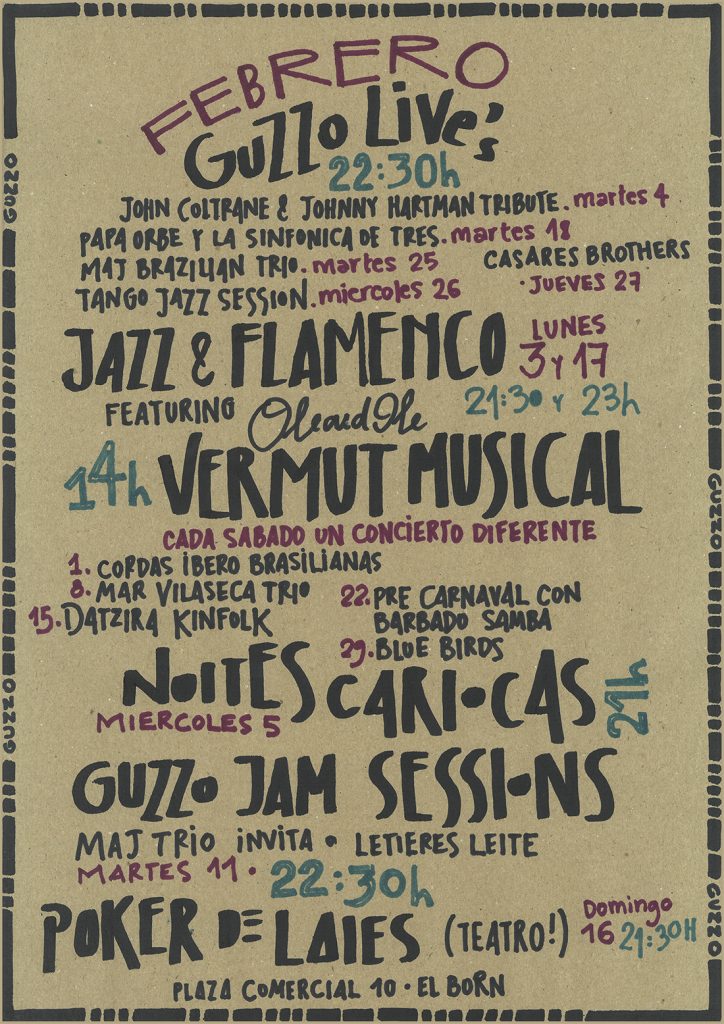 FEBRERO
GUZZO LIVE's
22:30h
JOHN COLTRANE & JOHNNY HARTMAN TRIBUTE. martes 4
PAPA ORBE Y LA SINFONICA DE TRES. martes 18
MAJ BRAZILIAN TRIO. martes 25
CASARES BROTHERS
TANGO JAZZ SESSION. miercoles 26
· JUEVES 27
JAZZ & FLAMENCO
LUNES
3 Y 17
FEATURING OleandOle
21:30 Y 23h
14h VERMUT MUSICAL
CADA SABADO UN CONCIERTO DIFERENTE
1. CORDAS IBERO BRASILIANAS
8. MAR VILASECA TRIO
15. DATZIRA KINFOLK
22. PRE CARNAVAL CON
BARBADO SAMBA
29. BLUE BIRDS
NOITES CARIOCAS
21h
MIERCOLES 5
GUZZO JAM SESSIONS
MAJ TRIO INVITA · LETIERES LEITE
MARTES 11 · 22:30h
POKER DE LAIES (TEATRO!)
Domingo
16 21:30H
PLAZA COMERCIAL 10 · EL BORN
GUZZO
GUZZO
GUZZO
GUZZO